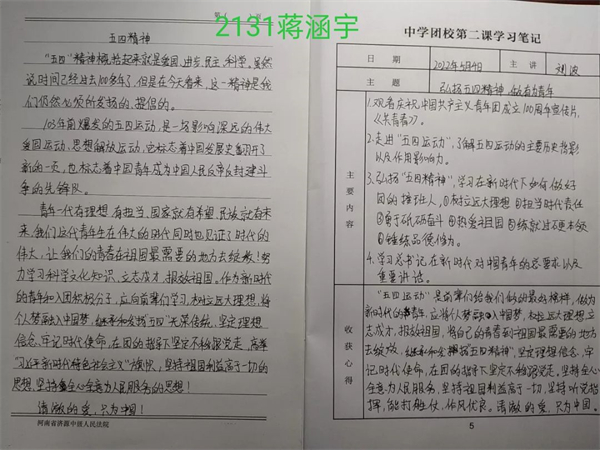 2131蒋涵宇
五四精神
"五四"精神概括起来就是爱国、进步、民主、科学。虽然
说时间已经过去100多年了,但是在今天看来,这一精神是我
们仍然必须所发扬的、提倡的。
103年前爆发的五四运动,是一场影响深远的伟大
爱国运动、思想解放运动,它标志着中国发展史翻开了
新的一页,也标志着中国青年成为中国人民反帝反封建斗
争的先锋队。
青年一代有理想、有担当,国家就有希望,民族就有未
来。我们这代青年生在伟大的时代同时也见证了时代的
伟大,让我们的青春在祖国最需要的地方去绽放!努
力学习科学文化知识,立志成才,报效祖国。作为新时代
的青年和入团积极分子,应向前辈们学习,树立远大理想,将
个人梦融入中国梦,继承和发扬"五四"光荣传统,坚定理想
信念,牢记时代使命,在团的指导下坚定不移跟党走,高举
"习近平新时代特色社会主义"旗帜,坚持祖国利益高于一切的
思想,坚持全心全意为人民服务的思想!
清澈的爱,只为中国!
河南省济源中级人民法院
中学团校第二课学习笔记
日期
2022年5月4日
主讲
刘波
主题
弘扬五四精神,做有为青年
主要内容
1.观看庆祝中国共产主义青年团成立100周年宣传片,
《共青春》。
2.走进"五四运动",了解五四运动的主要历史背景
以及作用影响力。
3.弘扬"五四精神",学习在新时代下如何做好
团的接班人,①树立远大理想②担当时代责任
③勇于砥砺奋斗④热爱祖国⑤练就过硬本领
⑥锤炼品德修为。
4.学习总书记在新时代对中国青年的总要求以及
重要讲话。
收获心得
"五四运动"是前辈们给我们做的最好榜样,做为
新时代的青年,应将个人梦融入中国梦,树立远大理想立
志成才,报效祖国,将自己的青春到祖国最需要的地方
去绽放,继承和发扬"五四精神",坚定理想信念,牢
记时代使命,在团的指导下坚定不移跟党走。坚持全心
全意为人民服务,坚持祖国利益高于一切,坚持听党指
挥,能打胜仗,作风优良。清澈的爱,只为中国。
5